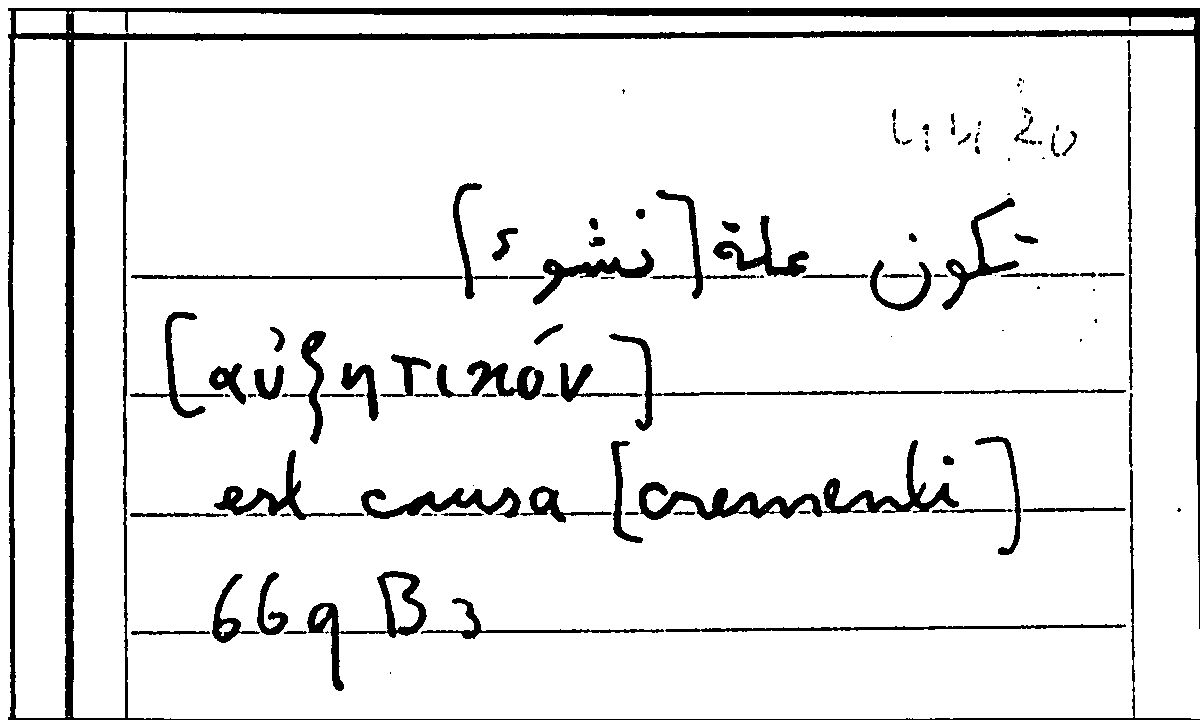 44 20
تكون علة [نشوء]
[αὐξητικόν]
est causa [crementi]
669 B3